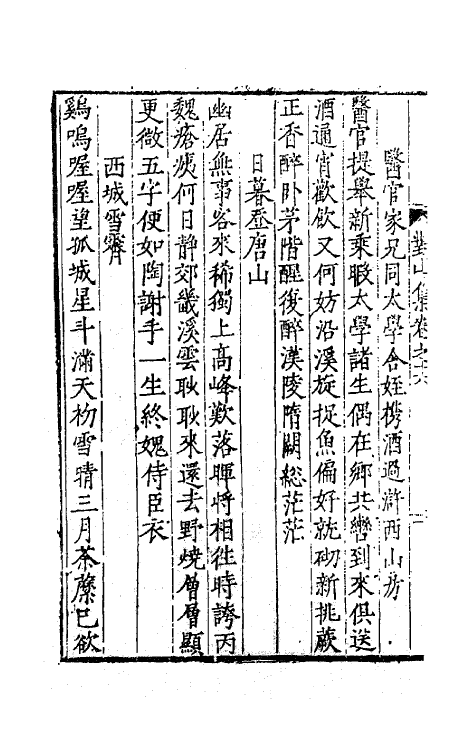 對山集卷之六
醫官家兄同太學合姪携酒過滸西山房
醫官提舉新乘暇太學諸生偶在鄉共轡到來俱送
酒通宵歡飲又何妨沿溪旋捉魚偏好就砌新挑蕨
正香醉卧茅階醒復醉漢陵隋闕総茫茫
日暮登唐山
幽居無事客來稀獨上高峰歎落暉將相往時誇丙
魏瘡痍何日靜郊畿溪雲耿耿來還去野燒層層顯
更微五字便如陶謝手一生終媿侍臣衣
西城雪霽
鷄鳴喔喔望孤城星斗滿天初雪晴三月荼蘪巳欲